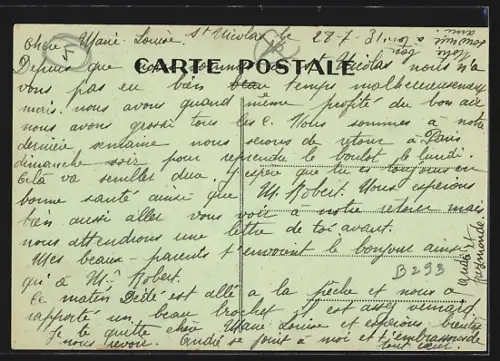 St Nicolas le 28-7-31
Chère Marie-Louise.
CARTE POSTALE
Depuis que nous sommes à St Nicolas nous n'a
vous pas eu bien beau temps malheureusement
mais nous avons quand même profité du bon air
nous avons grossi tous les 2. Nous sommes à notre
dernière semaine nous serons de retour à Paris
dimanche soir pour reprendre le boulot le lundi.
Cela va sembler dur. J'espère que tu es toujours en
bonne santé ainsi que M. Robert. Nous espérons
bien aussi aller vous voir à notre retour mais
nous attendrons une lettre de toi avant.
Mes beaux-parents t'envoient le bonjour ainsi
qu'à M. Robert.
Ce matin Dédé est allé a la pêche et nous a
rapporté un beau brochet il est assez veinard.
Je te quitte chère Marie Louise et espérons bientôt
nous revoir. André se joint à moi et t'embrassons de
tout cœur.
André et
B293